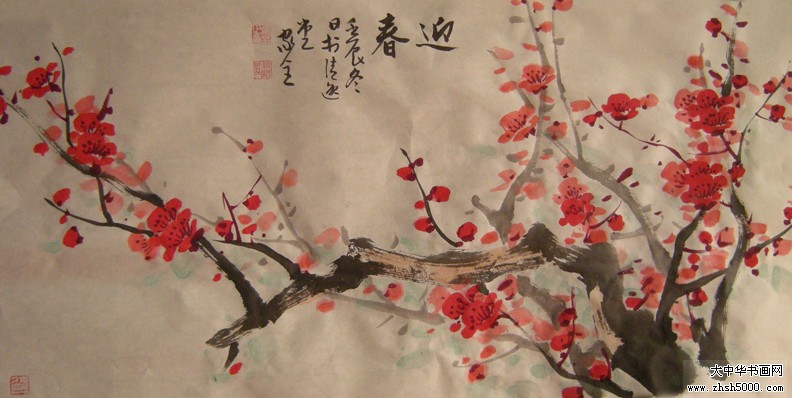 迎春
壬辰冬
日于清逸
堂
家全
大中华书画网
www.zhsh5000.com